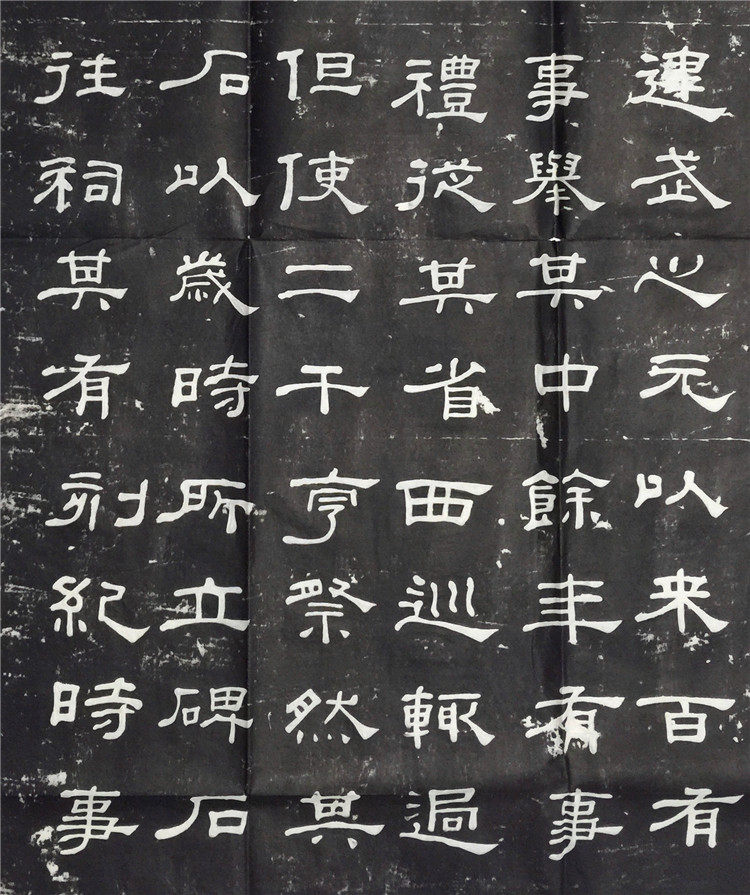 建武之元以来百有
事舉其中餘年有事
禮從其省西巡輒過
但使二千亨祭然其
石以歲時所立碑石
往祠其有刻紀時事